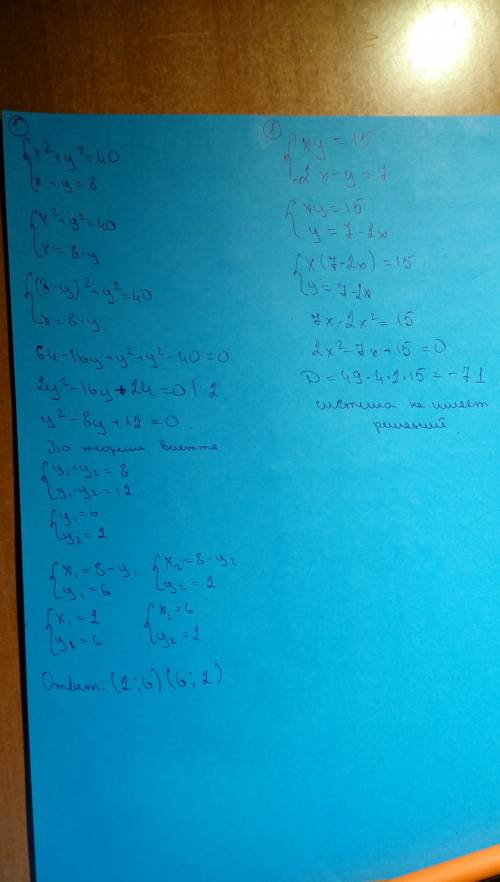 1
x² + y² = 40
x - y = 8
x² + y² = 40
x = 8 - y
(8 - y)² + y² = 40
x = 8 - y
64 - 16y + y² + y² - 40 = 0
2y² - 16y + 24 = 0 | 2
y² - 8y + 12 = 0
По теореме Виетта
y₁ + y₂ = 8
y₁ · y₂ = 12
y₁ = 6
y₂ = 2
x₁ = 8 - y₁ x₂ = 8 - y₂
y₁ = 6 y₂ = 2
x₁ = 2 x₂ = 6
y₁ = 6 y₂ = 2
Ответ: (2; 6) (6; 2)
xy = 15
2x - y = 7
xy = 15
y = 7 - 2x
x(7 - 2x) = 15
y = 7 - 2x
7x - 2x² = 15
2x² - 7x + 15 = 0
D = 49 - 4 · 2 · 15 = -71
система не имеет
решений